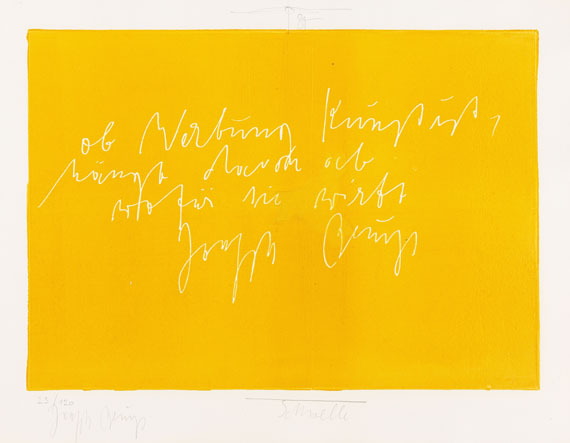 ob Werbung Kunst ist,
hängt davon ab
wofür sie wirbt
Joseph Beuys
Schwelle
Joseph Beuys